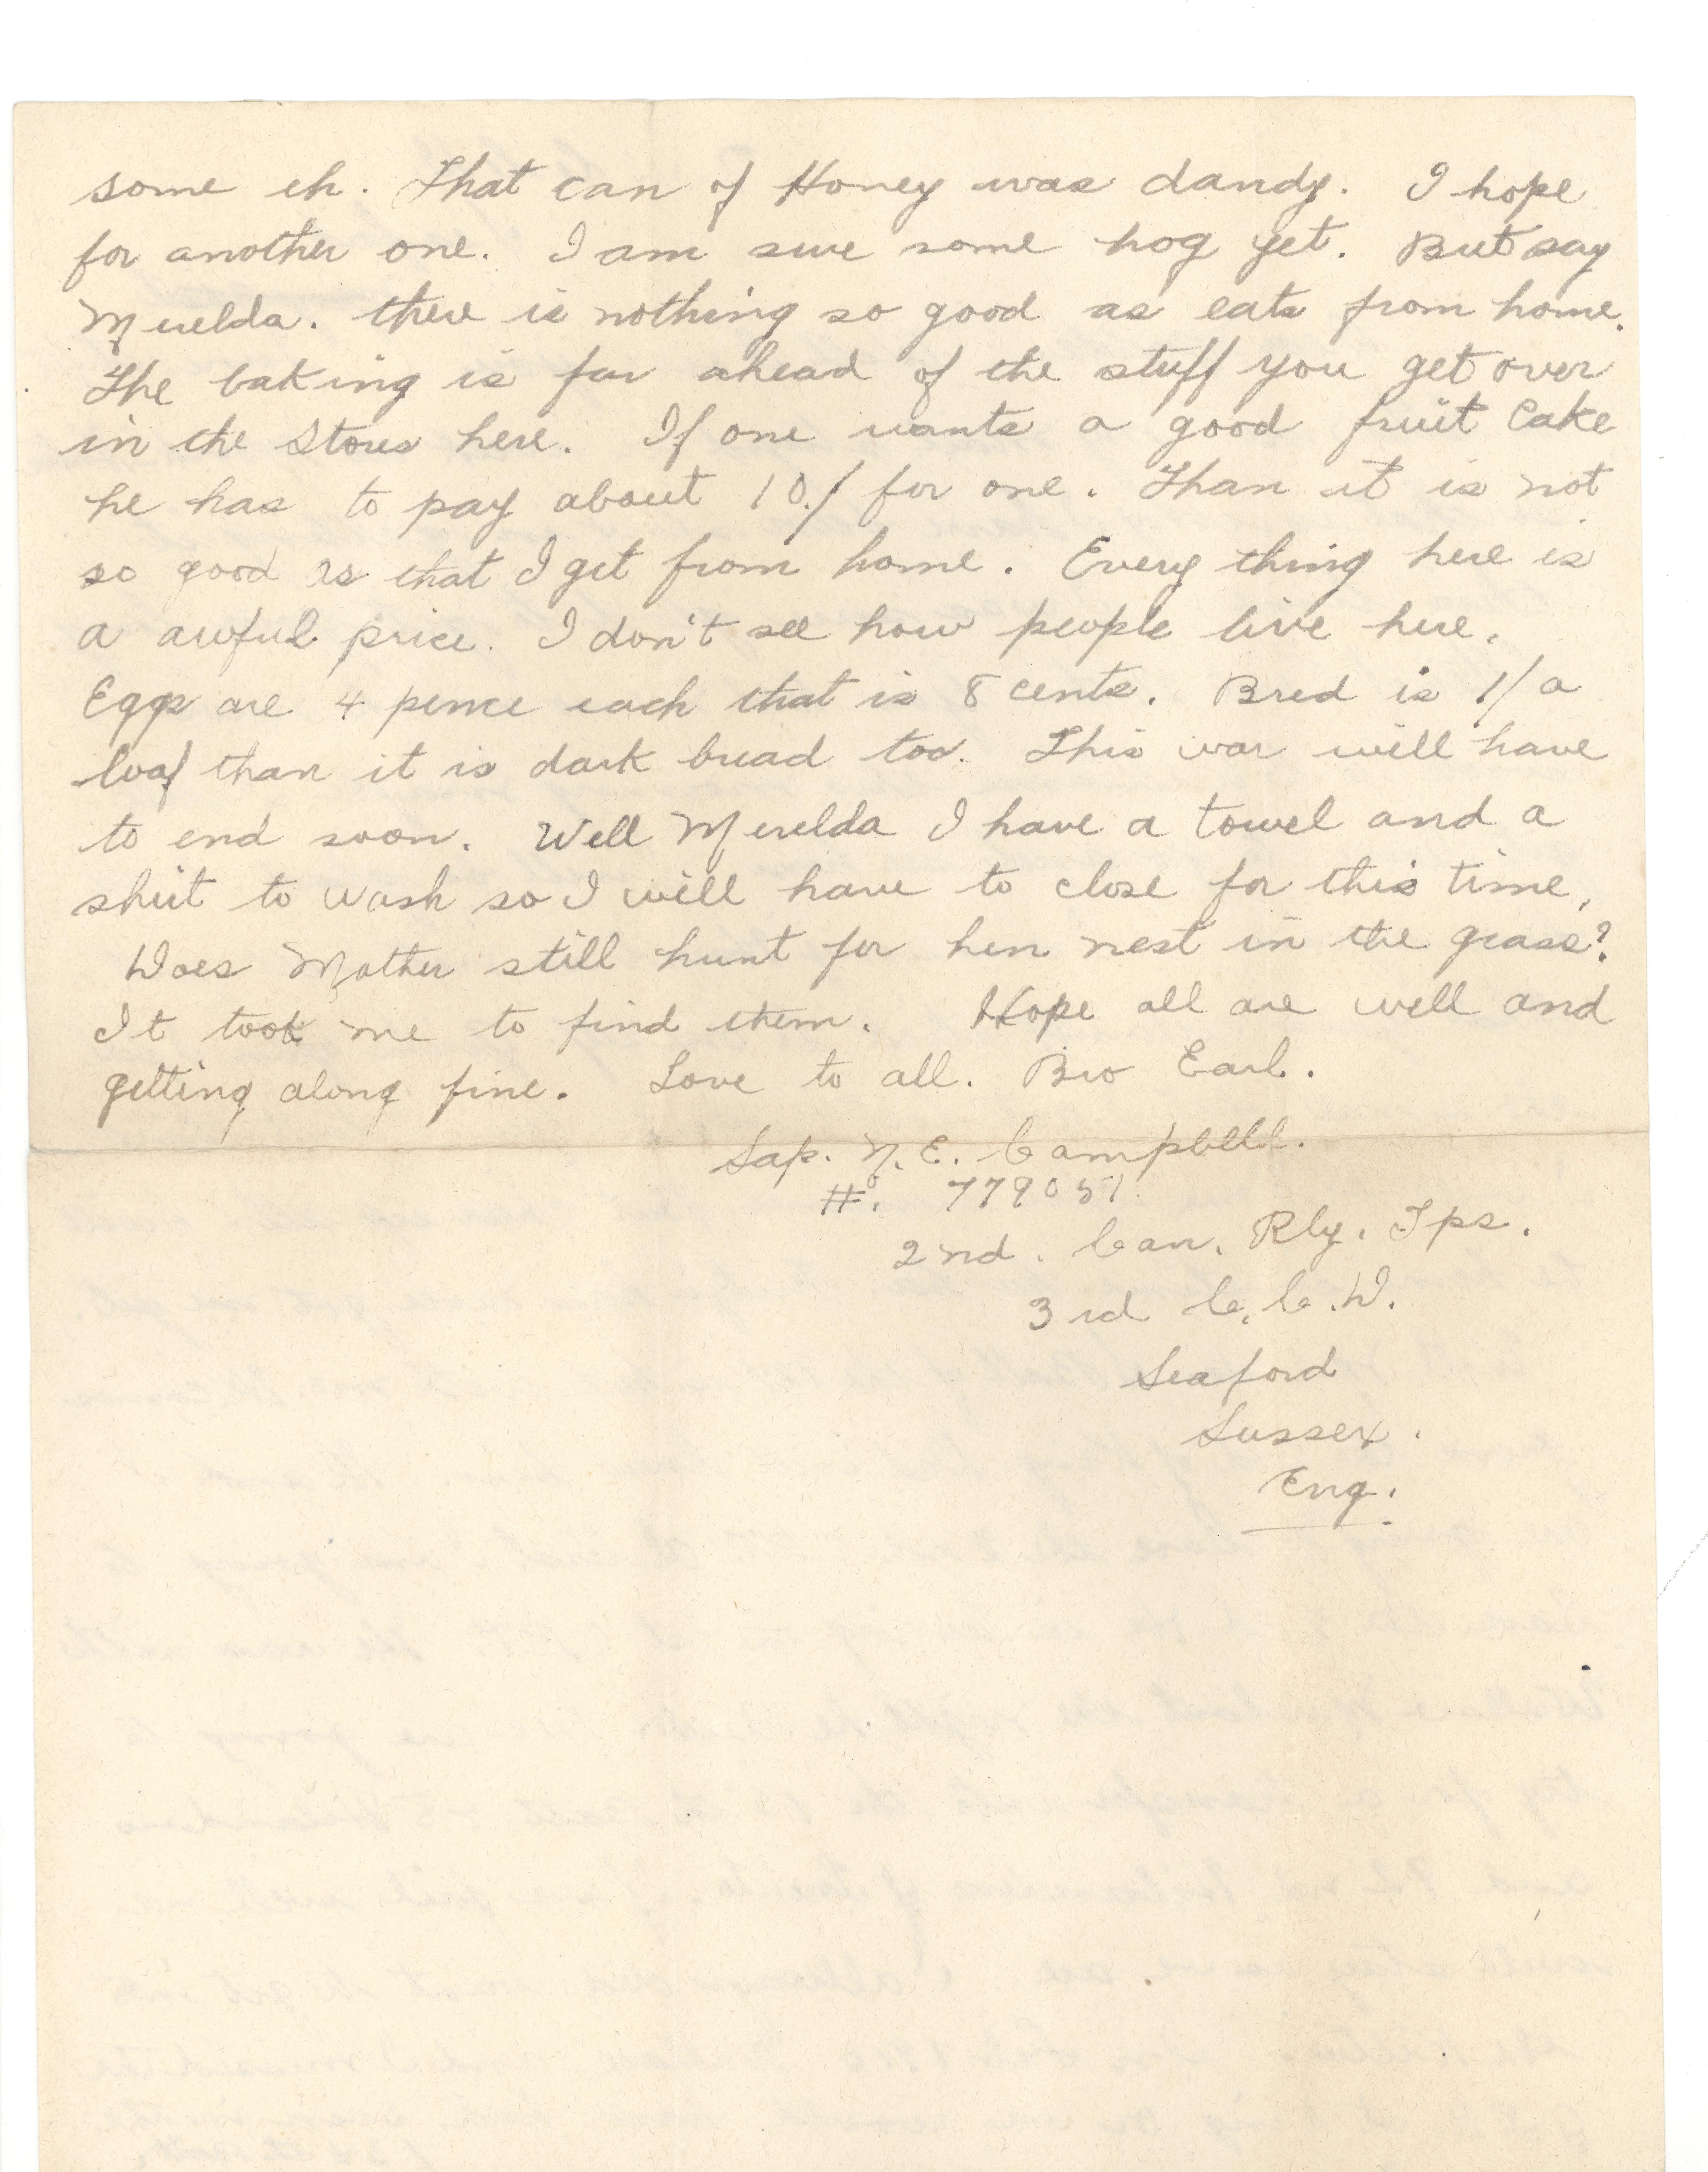 some eh. That can of Honey was dandy. I hope
for another one. I am sure some hog yet. But say
Merelda. there is nothing so good as eats from home.
The baking is far ahead of the stuff you get over
in the Stores here. If one wants a good fruit Cake
he has to pay about 10/ for one. Than it is not
so good as that I get from home. Every thing here is
a awful price. I don't see how people live here.
Eggs are 4 pence each that is 8 cents. Bred is 1/ a
loaf than it is dark bread too. This war will have
to end soon. Well Merelda I have a towel and a
shirt to wash so I will have to close for this time,
Does Mother still hunt for hen nest in the grass?
It took me to find them. Hope all are well and
getting along fine. Love to all. Bro Earl.
Sap. N. E. Campbell.
#. 779051.
2nd. Can. Rly. Tps.
3rd C. C. D.
Seaford
Sussex.
Eng.